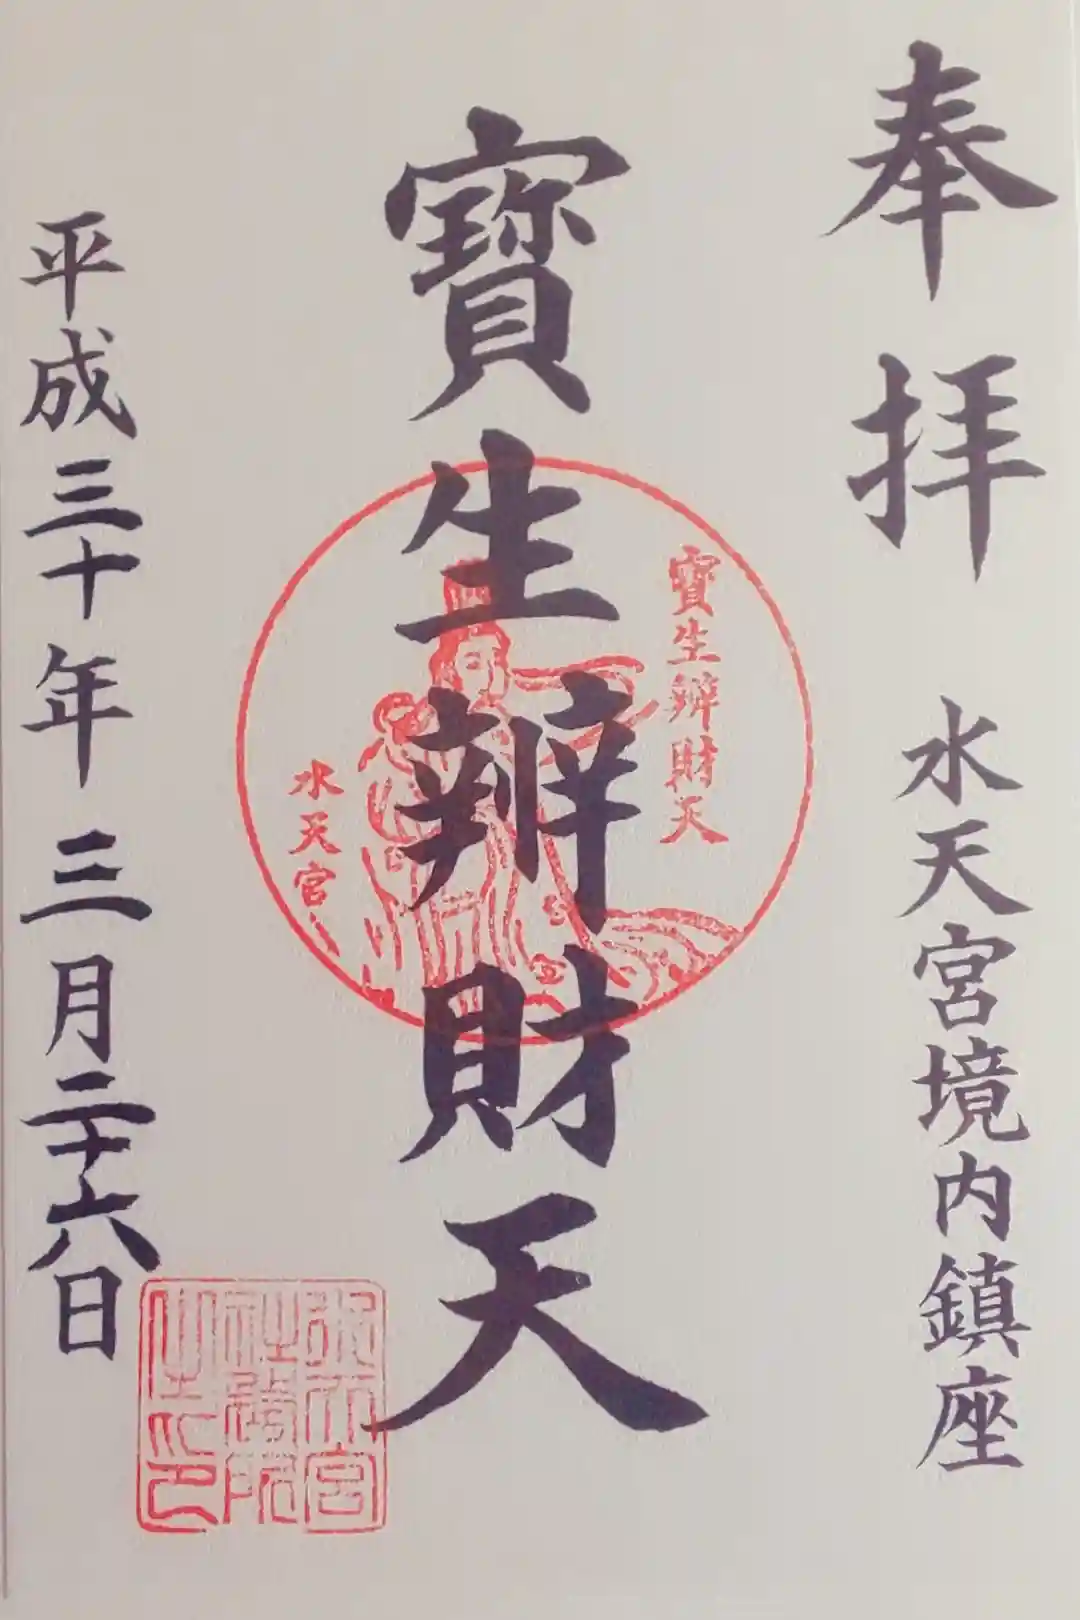 奉拝
水天宮境内鎮座
寳生辨財天
寳生辨財天
水天宮
平成三十年三月二十六日
水天宮
社務院
之印